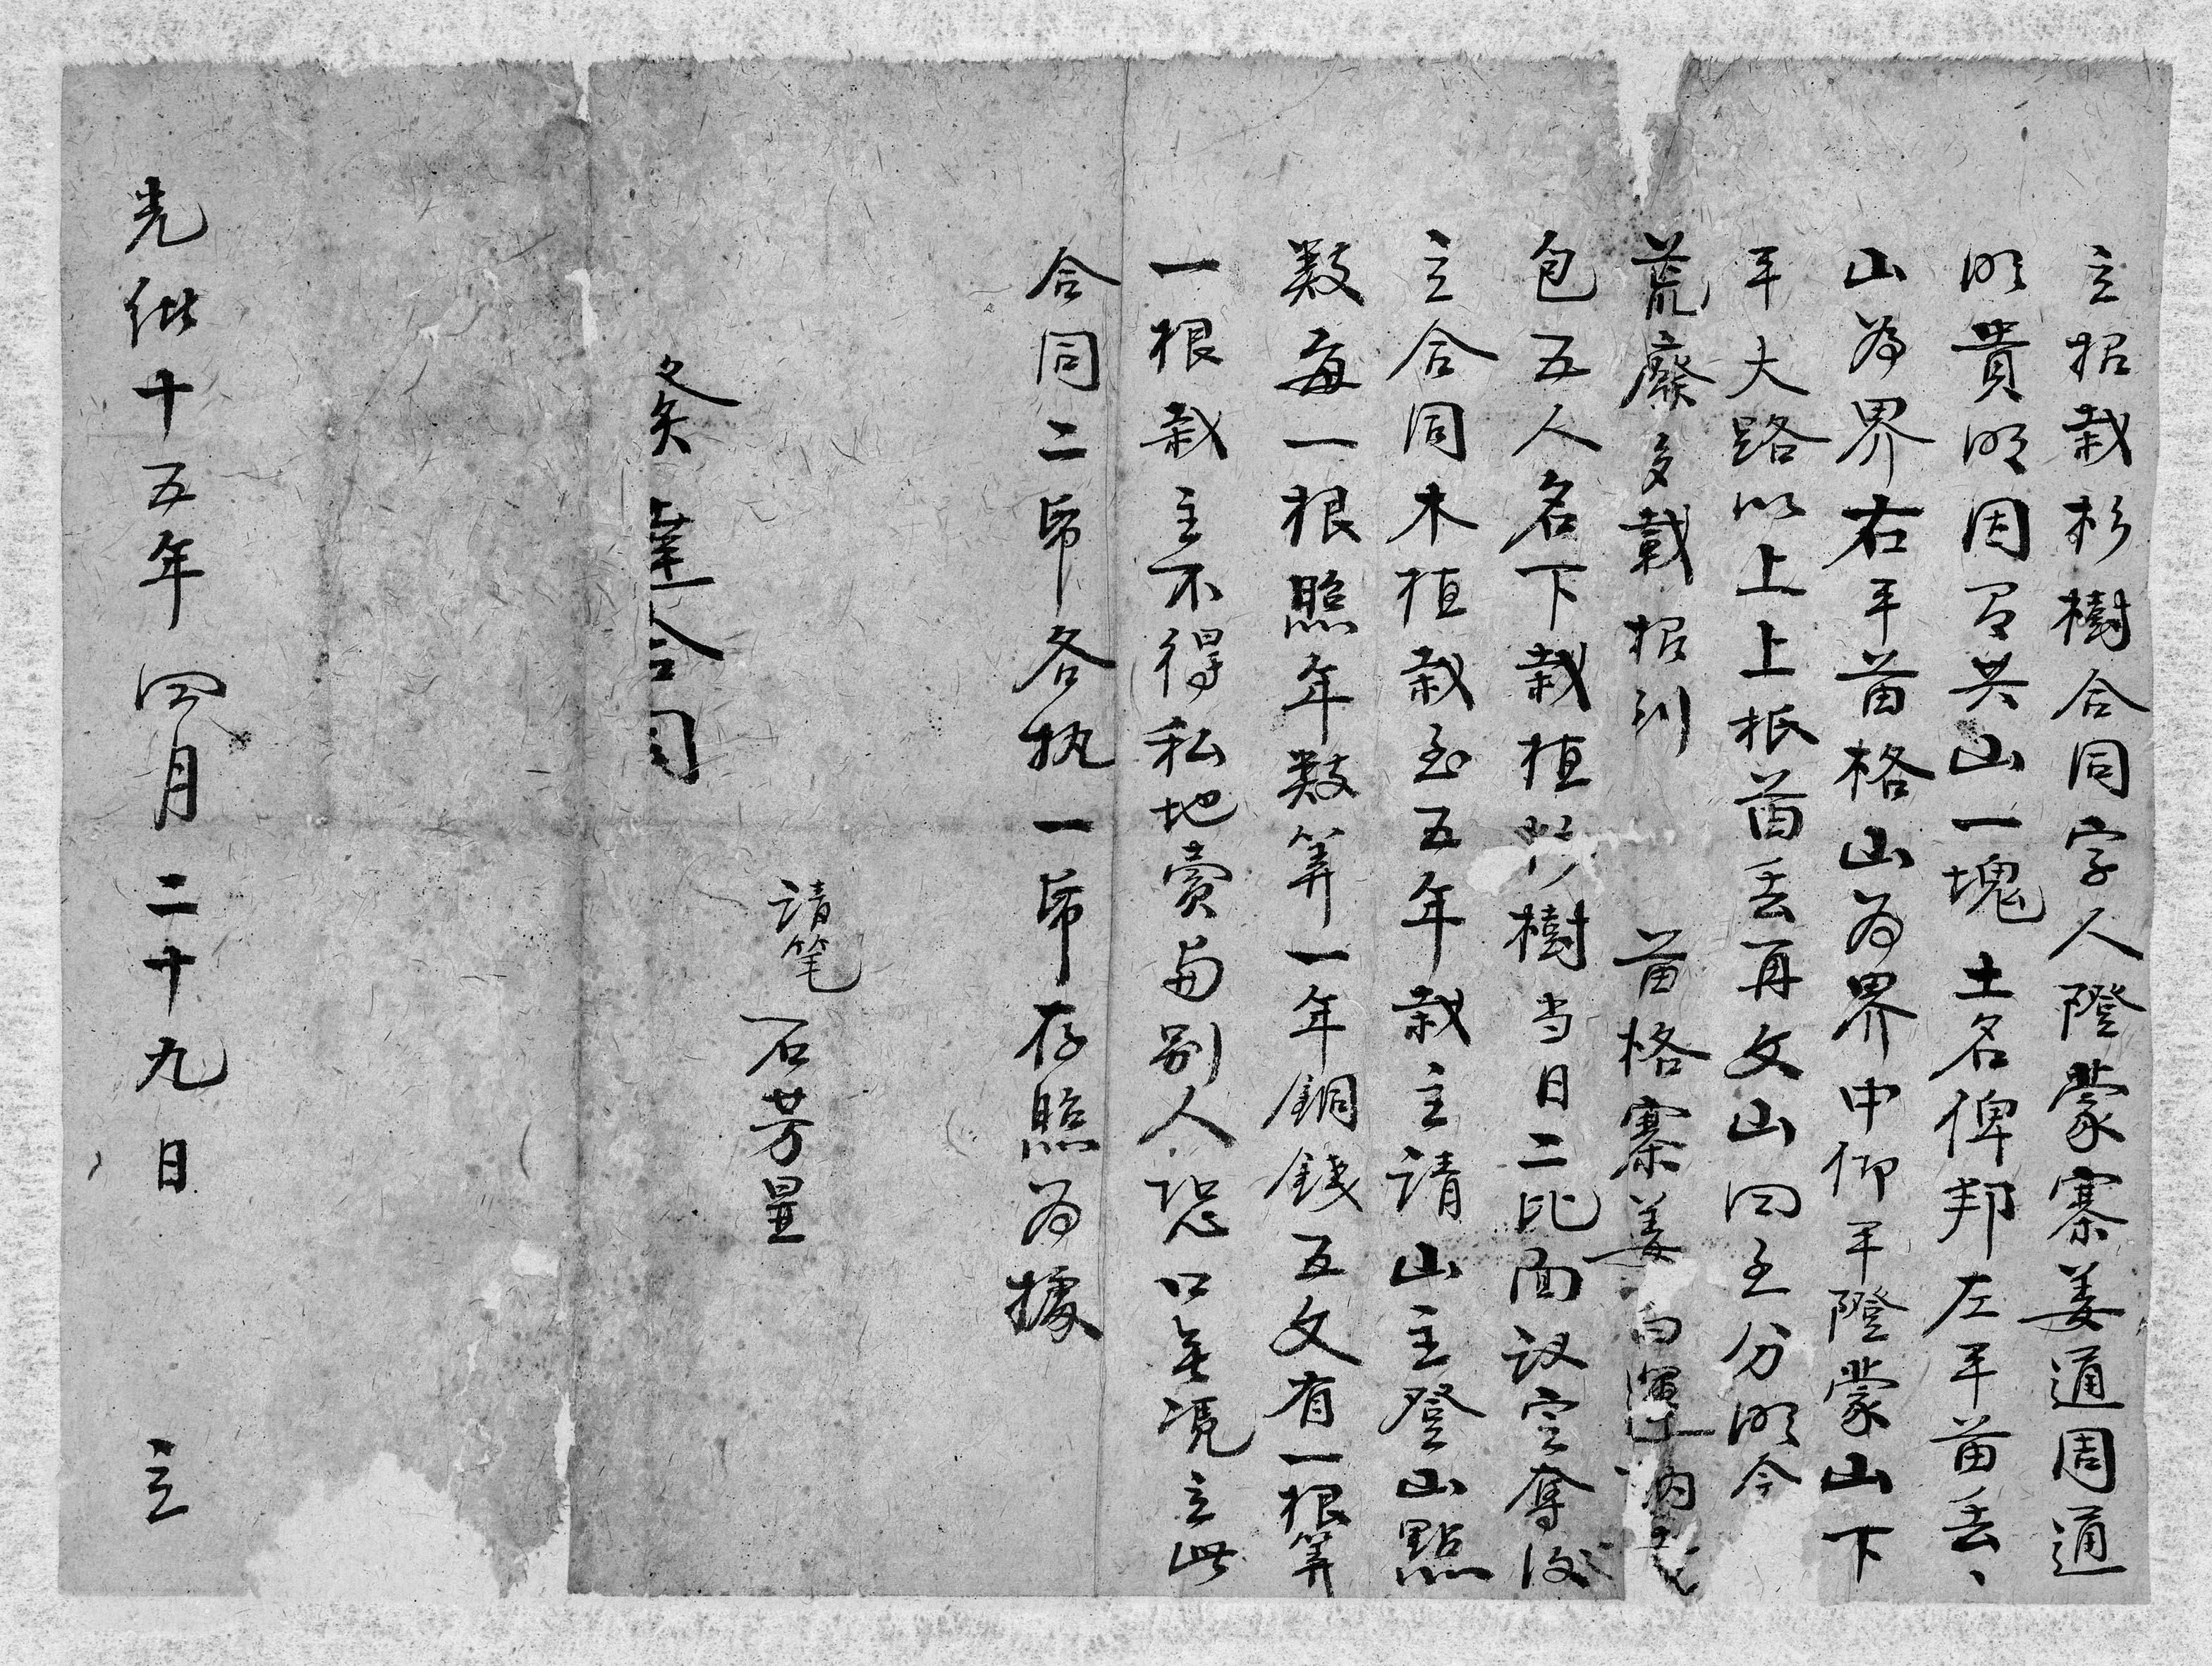 立招栽杉樹合同字人隥蒙寨姜通周通
明貴明因有共山一塊土名俾邦左平苗丢
山為界右平苗格山为界中仰平隥蒙山下
平大路以上上抵苗丢再文山四至分明今
荒廢多載招到 苗格寨姜
包五人名下栽植杉樹当日二比面议定奪後
立合同木植栽至五年栽主请山主登山點
数每一根照年数算一年銅錢五文有一根算
一根栽主不得私地賣與别人恐口无凭立此
合同二帋各执一帋存照为據
请笔 石芳星
合同
光绪十五年四月二十九日 立